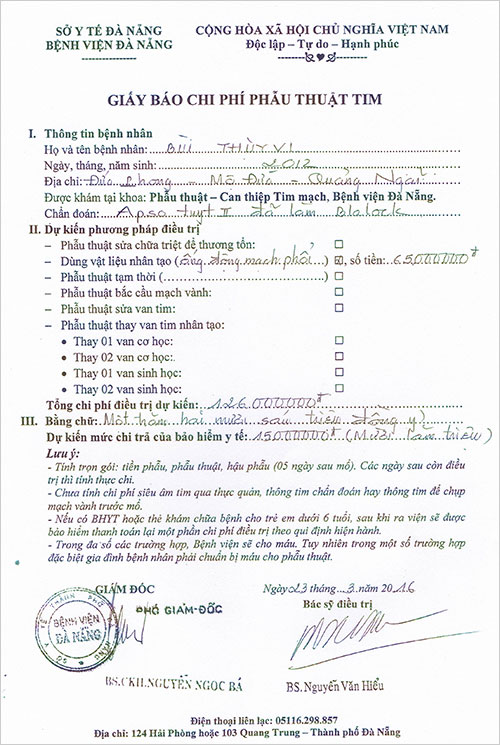 SỞ Y TẾ ĐÀ NẴNG
BỆNH VIỆN ĐÀ NẴNG
CỘNG HÒA XÃ HỘI CHỦ NGHĨA VIỆT NAM
Độc lập – Tự do – Hạnh phúc
GIẤY BÁO CHI PHÍ PHẪU THUẬT TIM
I. Thông tin bệnh nhân
Họ và tên bệnh nhân: BÙI THÙY VI
Ngày, tháng, năm sinh: 2012
Địa chỉ: Đức Phong - Mộ Đức - Quảng Ngãi
Được khám tại khoa: Phẫu thuật – Can thiệp Tim mạch, Bệnh viện Đà Nẵng.
Chẩn đoán: Apso tuyt II đã làm Blalock
II. Dự kiến phương pháp điều trị
– Phẫu thuật sửa chữa triệt để thương tổn: ☐
– Dùng vật liệu nhân tạo (ống động mạch phổi) ☑, số tiền: 65000000đ
– Phẫu thuật tạm thời (..............................) ☐
– Phẫu thuật bắc cầu mạch vành: ☐
– Phẫu thuật sửa van tim: ☐
– Phẫu thuật thay van tim nhân tạo:
• Thay 01 van cơ học: ☐
• Thay 02 van cơ học: ☐
• Thay 01 van sinh học: ☐
• Thay 02 van sinh học: ☐
Tổng chi phí điều trị dự kiến: 126000000đ
III. Bằng chữ: Một trăm hai mươi sáu triệu đồng y)
Dự kiến mức chi trả của bảo hiểm y tế: 15000000đ (Mười lăm triệu)
Lưu ý:
- Tính trọn gói: tiền phẫu, phẫu thuật, hậu phẫu (05 ngày sau mổ). Các ngày sau còn điều
trị thì tính thực chi.
- Chưa tính chi phí siêu âm tim qua thực quản, thông tim chẩn đoán hay thông tim để chụp
mạch vành trước mổ.
- Nếu có BHYT hoặc thẻ khám chữa bệnh cho trẻ em dưới 6 tuổi, sau khi ra viện sẽ được
bảo hiểm thanh toán lại một phần chi phí điều trị theo qui định hiện hành.
- Trong đa số các trường hợp, Bệnh viện sẽ cho máu. Tuy nhiên trong một số trường hợp
đặc biệt gia đình bệnh nhân phải chuẩn bị máu cho phẫu thuật.
GIÁM ĐỐC
PHÓ GIÁM-ĐỐC
Ngày 23 tháng 3 năm 2016
Bác sỹ điều trị
BỆNH VIỆN
ĐÀ NẴNG
BS.CKII.NGUYỄN NGỌC BÁ
BS. Nguyễn Văn Hiếu
Điện thoại liên lạc: 05116.298.857
Địa chỉ: 124 Hải Phòng hoặc 103 Quang Trung – Thành phố Đà Nẵng